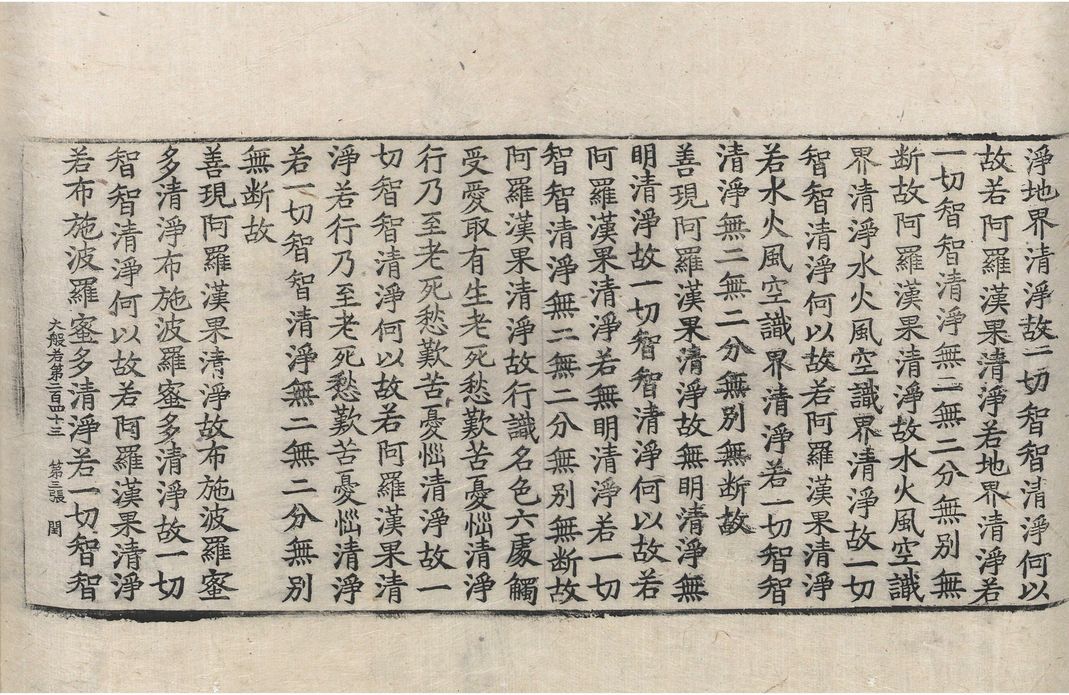 淨地界清淨故一切智智清淨何以
故若阿羅漢果清淨若地界清淨若
一切智智清淨無二無二分無別無
断故阿羅漢果清淨故水火風空識
界清淨水火風空識界清淨故一切
智智清淨何以故若阿羅漢果清淨
若水火風空識界清淨若一切智智
清淨無二無二分無別無断故
善現阿羅漢果清淨故無明清淨無
明清淨故一切智智清淨何以故若
阿羅漢果清淨若無明清淨若一切
智智清淨無二無二分無別無断故
阿羅漢果清淨故行識名色六處觸
受愛取有生老死愁歎苦憂惱清淨
行乃至老死愁歎苦憂惱清淨故一
切智智清淨何以故若阿羅漢果清
淨若行乃至老死愁歎苦憂惱清淨
若一切智智清淨無二無二分無別
無断故
善現阿羅漢果清淨故布施波羅蜜
多清淨布施波羅蜜多清淨故一切
智智清淨何以故若阿羅漢果清淨
若布施波羅蜜多清淨若一切智智
大般若第二百四十三 第三張 閏